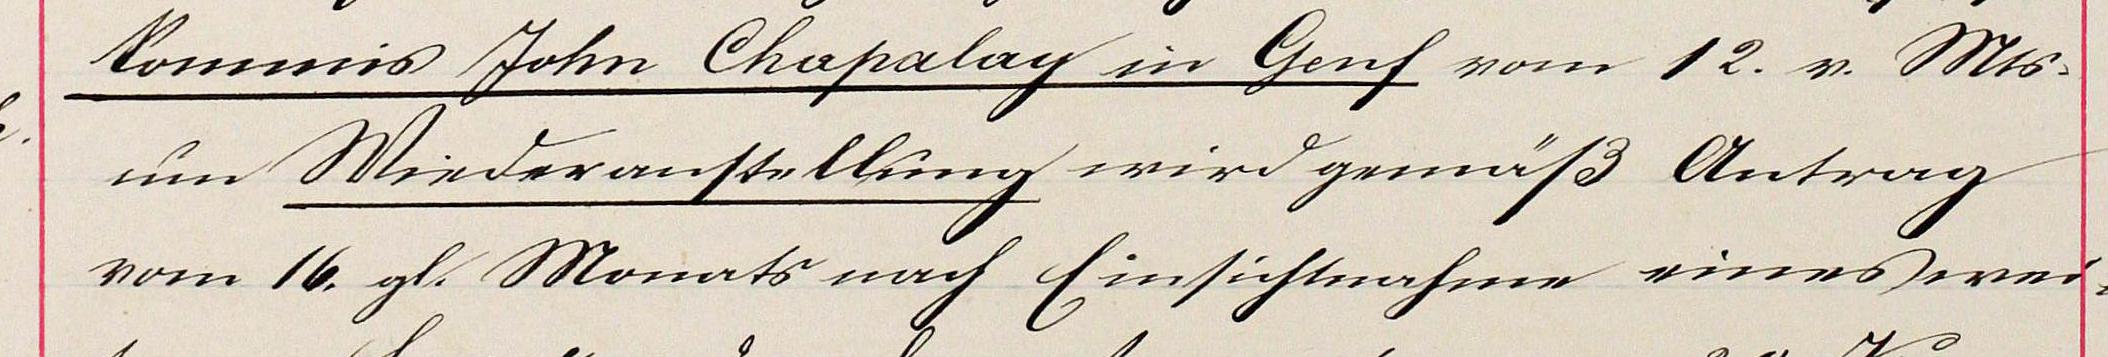 Kommis John Chapalay in Genf vom 12. v. Mts.
um Wiederanstellung wird gemäß Antrag
vom 16. gl. Monats nach Einsichtnahme eines wei-